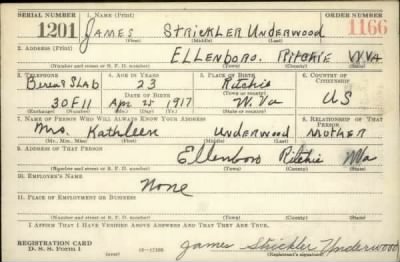 SERIAL NUMBER 1. NAME (Print) ORDER NUMBER
1201 JAMES STRICKLER UNDERWOOD 1166
(First) (Middle) (Last)
2. ADDRESS (Print)
ELLENBORO. RITCHIE W VA
(Number and street or R. F. D. number) (Town) (County) (State)
3. TELEPHONE 4. AGE IN YEARS 5. PLACE OF BIRTH 6. COUNTRY OF CITIZENSHIP
Berea SLAB 23 Ritchie
DATE OF BIRTH (Town or county)
30F11 Apr 25 1917 W. Va US
(Exchange) (Number) (Mo.) (Day) (Yr.) (State or country)
7. NAME OF PERSON WHO WILL ALWAYS KNOW YOUR ADDRESS 8. RELATIONSHIP OF THAT PERSON
Mrs. Kathleen Underwood MOTHER
(Mr., Mrs., Miss) (First) (Middle) (Last)
9. ADDRESS OF THAT PERSON
Ellenboro Ritchie Wva
(Number and street or R. F. D. number) (Town) (County) (State)
10. EMPLOYER'S NAME
None
11. PLACE OF EMPLOYMENT OR BUSINESS
(Number and street or R. F. D. number) (Town) (County) (State)
I AFFIRM THAT I HAVE VERIFIED ABOVE ANSWERS AND THAT THEY ARE TRUE.
REGISTRATION CARD
D. S. S. FORM 1 James Strickler Underwood
(Registrant's signature)